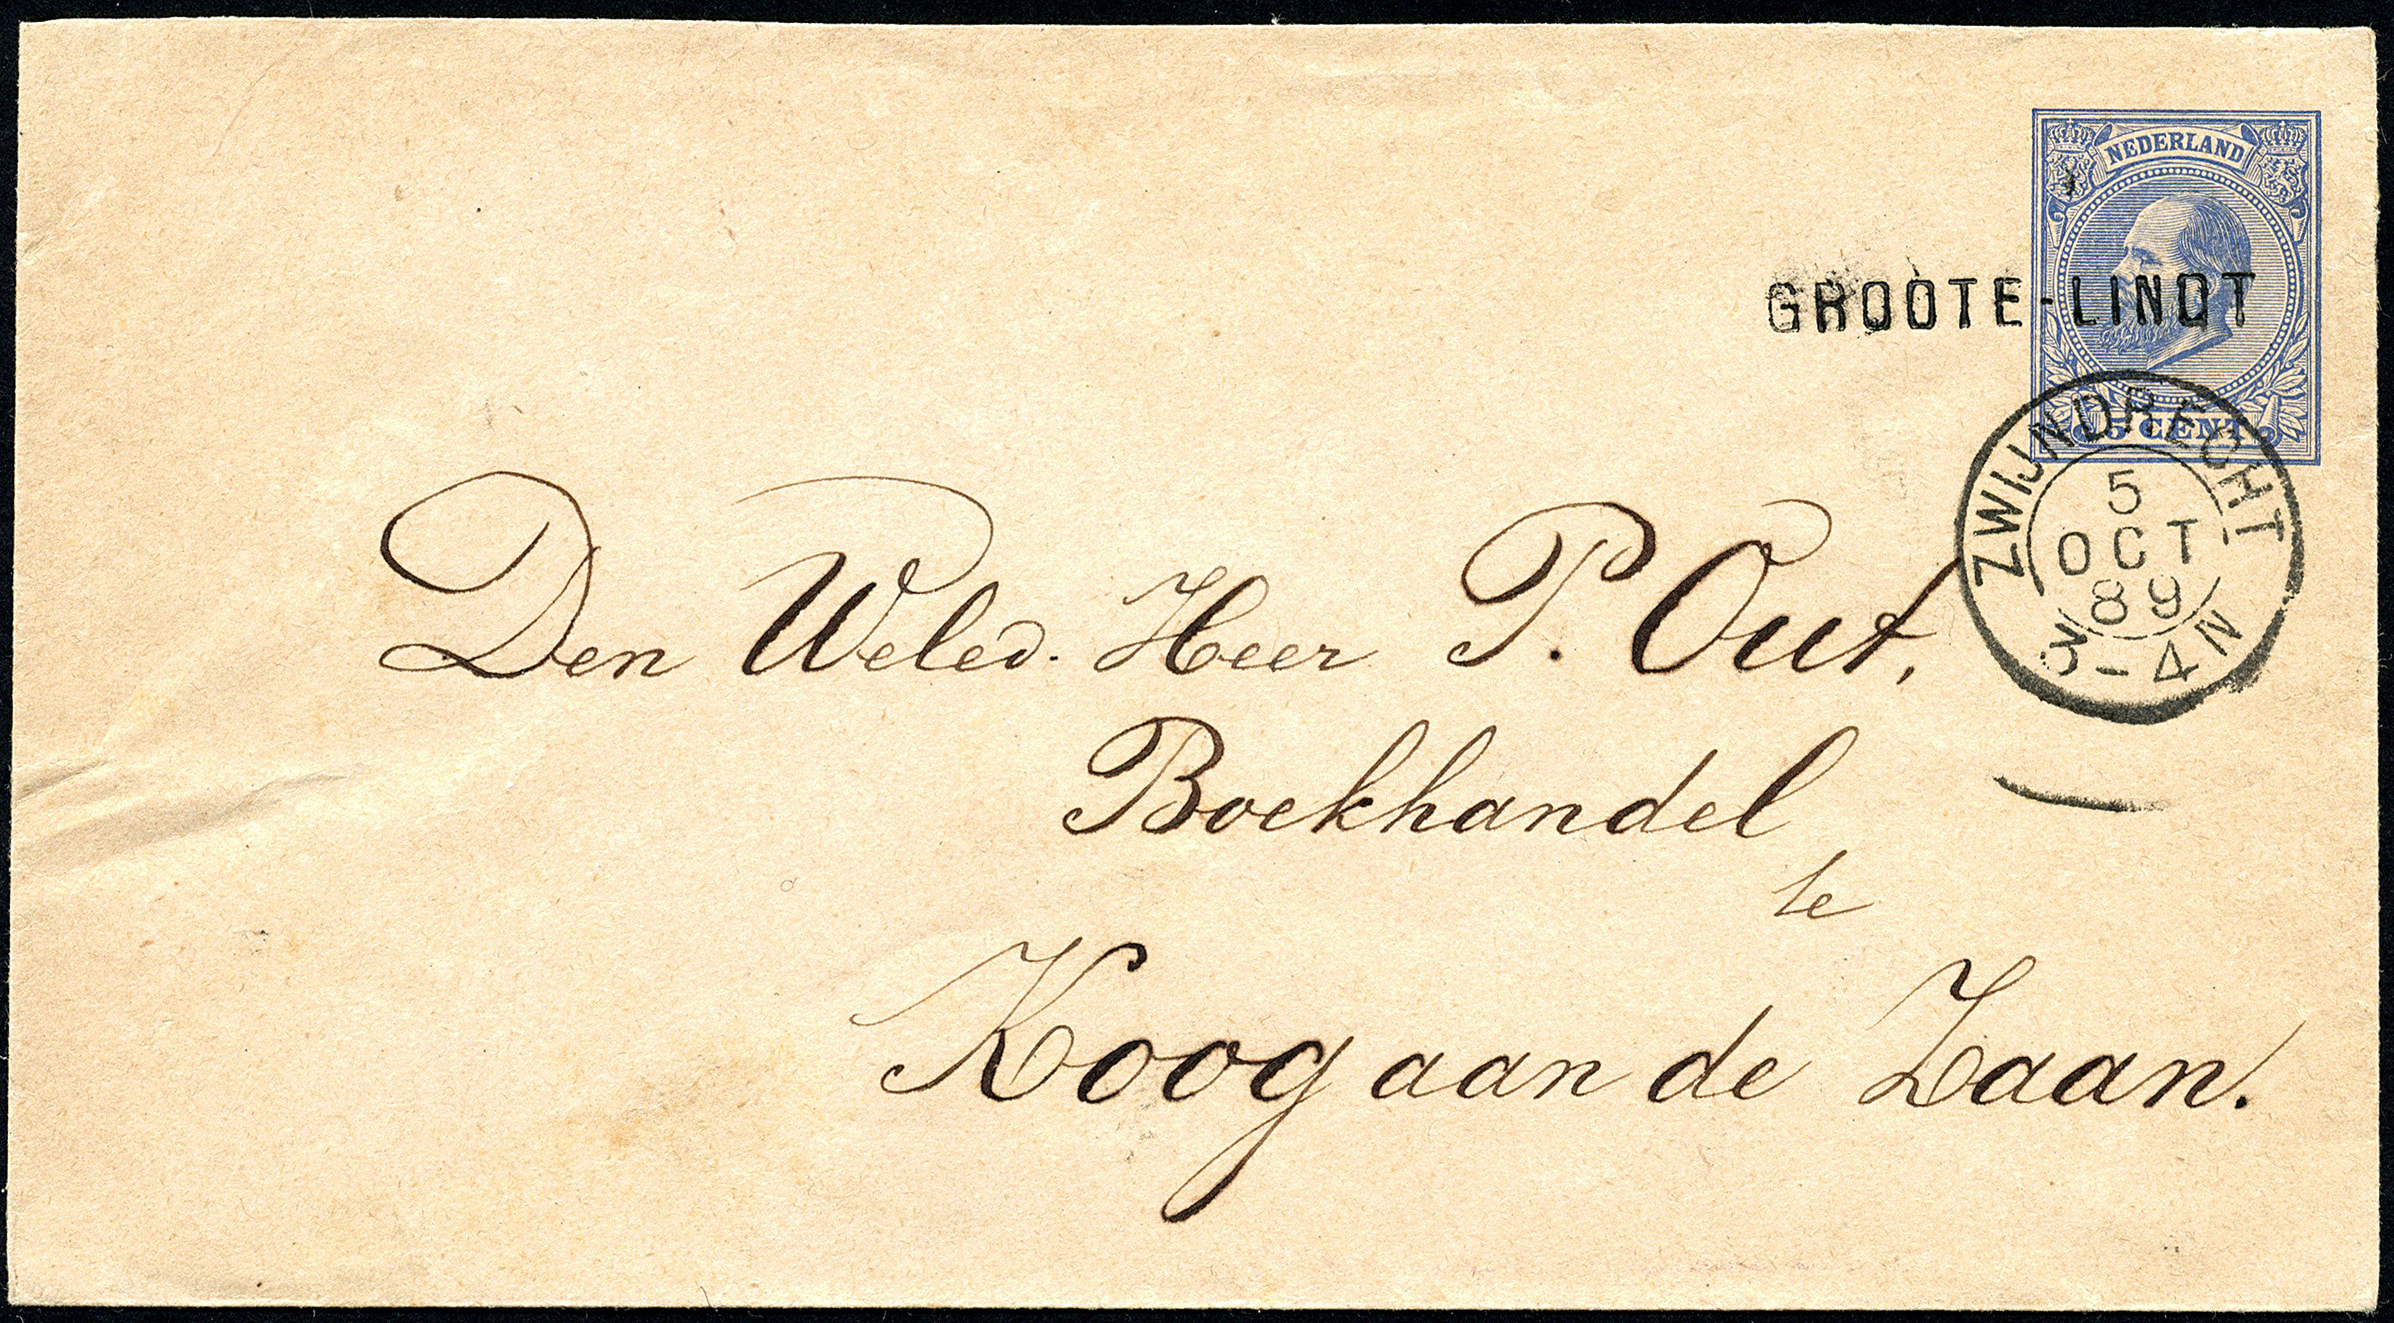 NEDERLAND
GROOTE-LINDT
5 CENT
ZWIJNDRECHT
5
OCT
89
3-4N
Den Weled. Heer P. Out,
Boekhandel
te
Koog aan de Zaan.